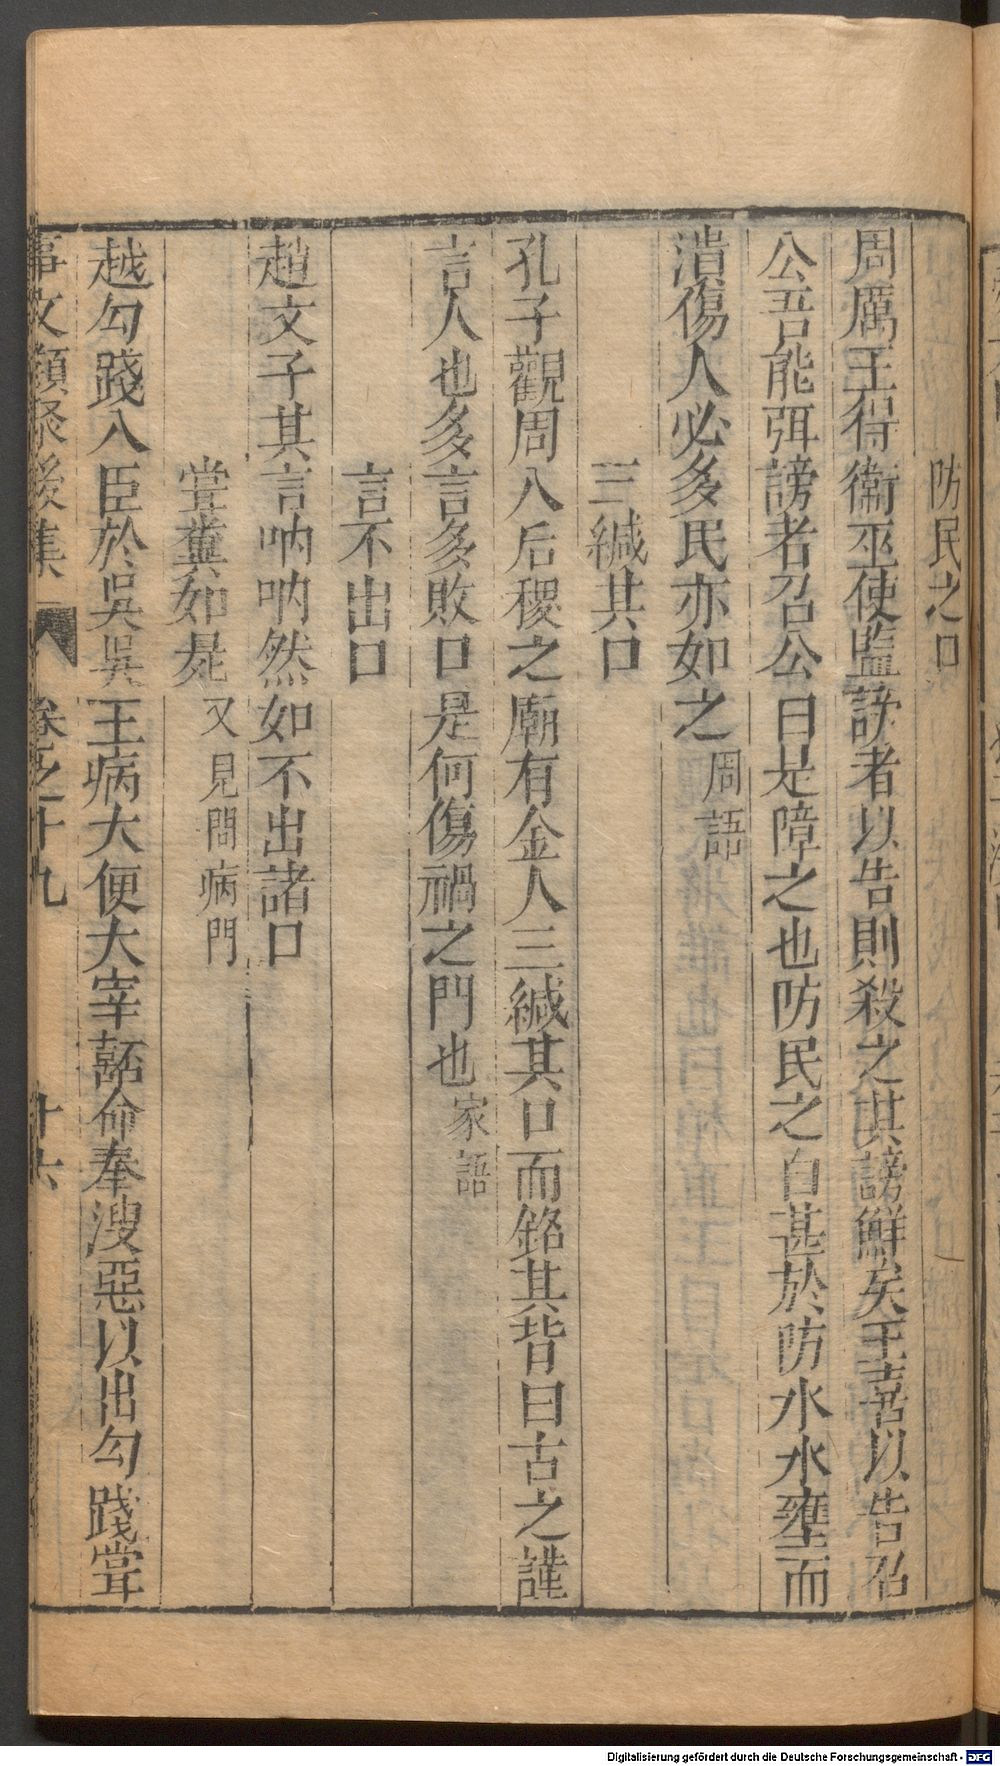 防民之口
周厲王得衞巫使監謗者以告則殺之其謗鮮矣王喜以告召
公吾能弭謗者召公曰是障之也防民之口甚於防水水壅而
潰傷人必多民亦如之周語
三緘其口
孔子觀周入后稷之廟有金人三緘其口而銘其背曰古之謹
言人也多言多敗口是何傷禍之門也家語
言不出口
趙文子其言吶吶然如不出諸口
嘗糞如毙又見問病門
越勾踐入臣於吳吳王病大便大宰嚭命奉溲惡以出勾踐嘗
事文類聚後集 卷之十九 十六
Digitalisierung gefördert durch die Deutsche Forschungsgemeinschaft - DFG